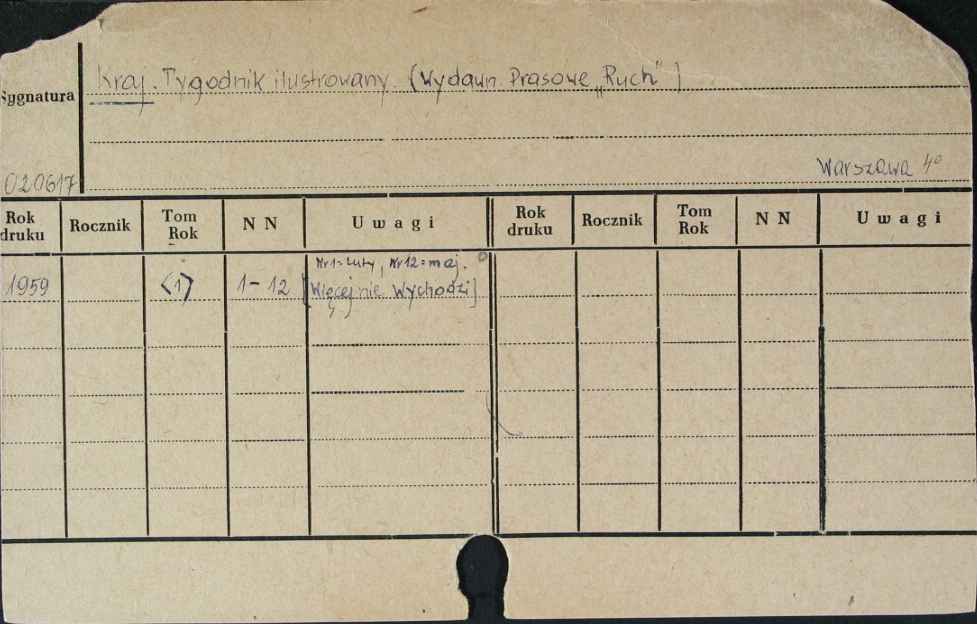 Kraj. Tygodnik ilustrowany. (Wydawn. Prasowe „Ruch”)
Sygnatura
020617
Warszawa 4°
Rok druku Rocznik Tom Rok N N Uwagi Rok druku Rocznik Tom Rok N N Uwagi
Nr 1=luty, Nr 12=maj.
1959 <1> 1-12 [Więcej nie wychodzi]